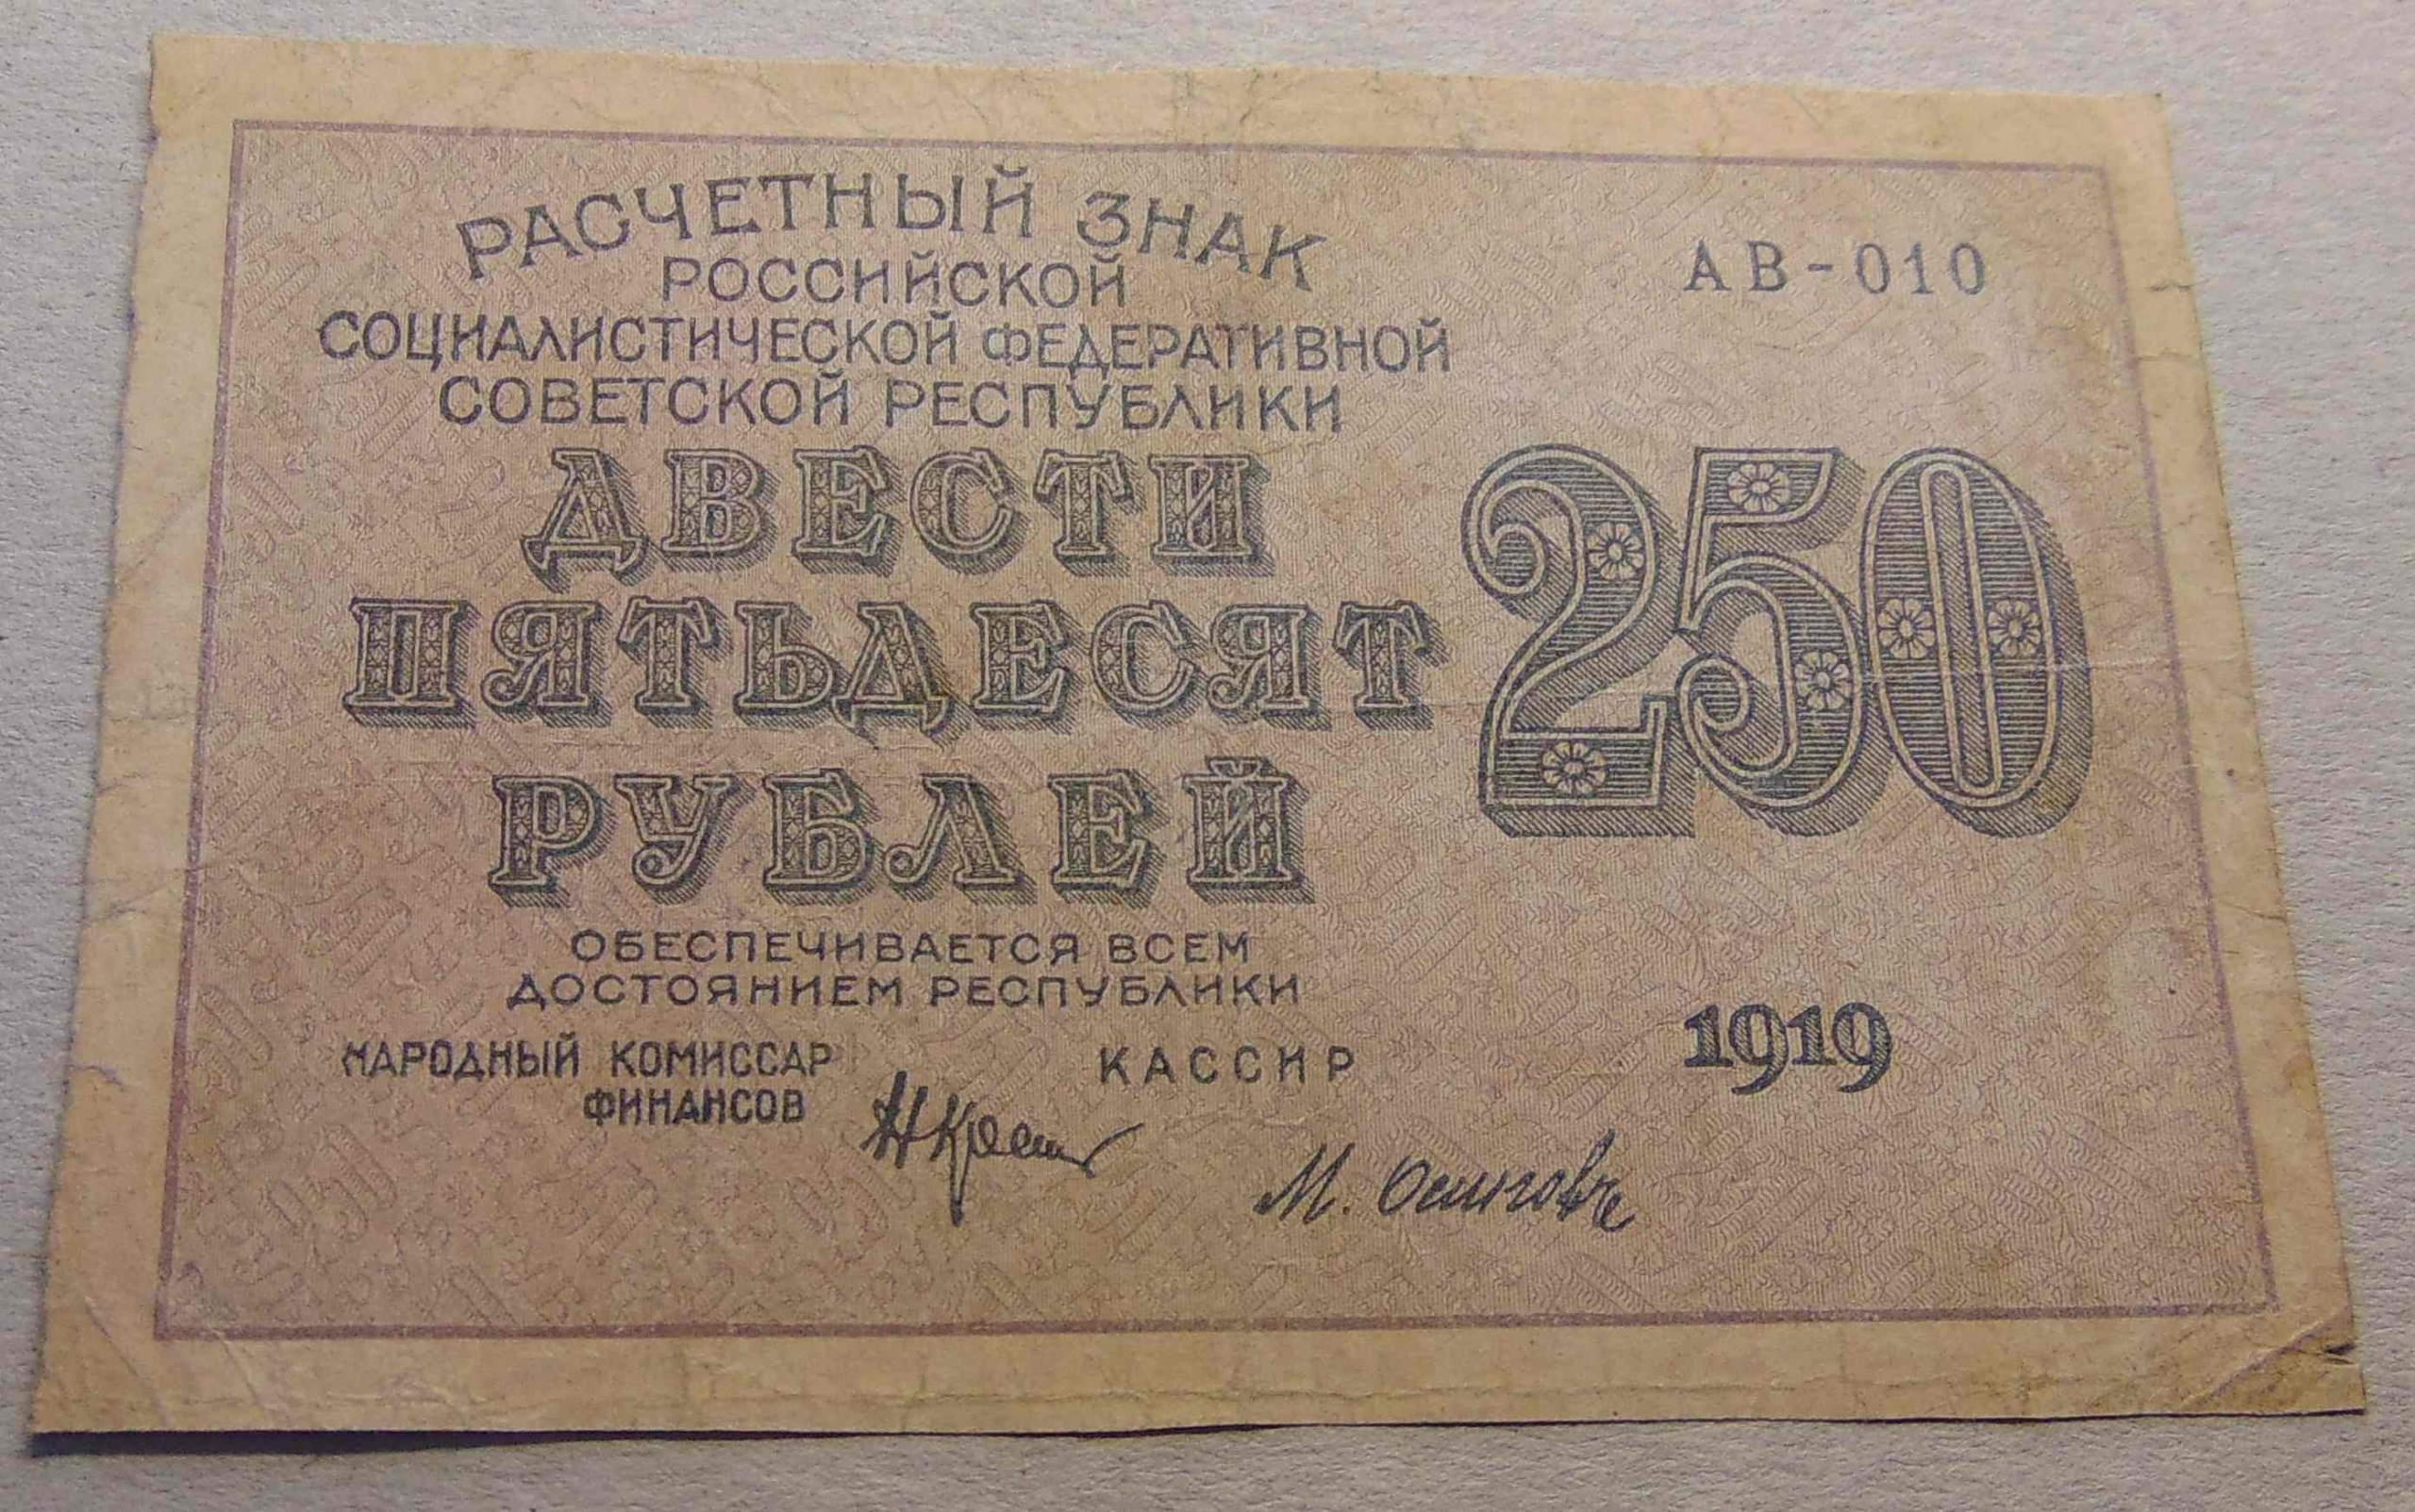 РАСЧЕТНЫЙ ЗНАК
РОССИЙСКОЙ
СОЦИАЛИСТИЧЕСКОЙ ФЕДЕРАТИВНОЙ
СОВЕТСКОЙ РЕСПУБЛИКИ
АВ-010
ДВЕСТИ
ПЯТЬДЕСЯТ
РУБЛЕЙ
250
ОБЕСПЕЧИВАЕТСЯ ВСЕМ
ДОСТОЯНИЕМ РЕСПУБЛИКИ
НАРОДНЫЙ КОМИССАР
ФИНАНСОВ
КАССИР
1919
М. Осиповъ